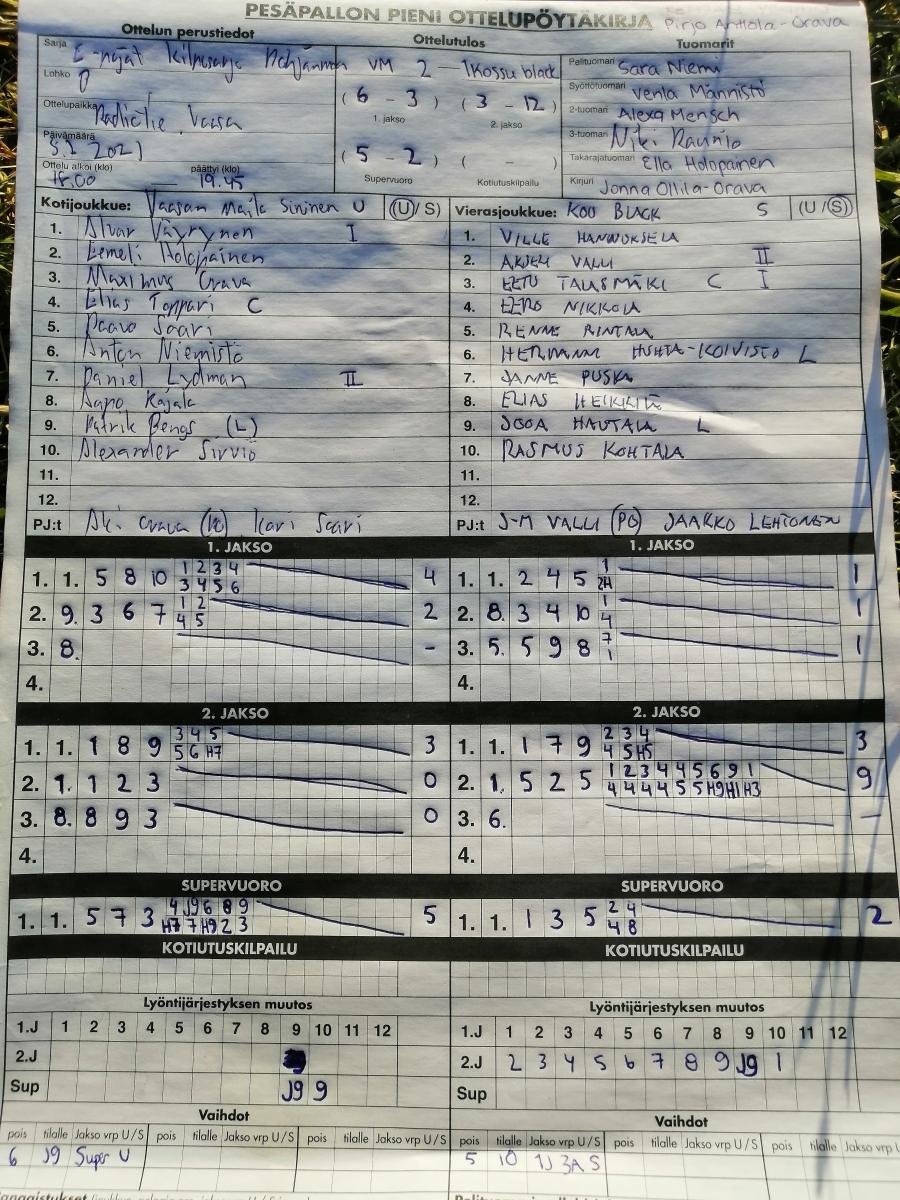 PESÄPALLON PIENI OTTELUPÖYTÄKIRJA Pirjo Anttola-Orava
Ottelun perustiedot Ottelutulos Tuomarit
Sarja E-pojat
Lohko
Ottelupaikka Vaasa
Päivämäärä
Ottelu alkoi (klo) päättyi (klo)
19.45
VM 2 - 1 Kossu black
(6 - 3) (3 - 12)
1. jakso 2. jakso
(5 - 2) (
Supervuoro Kotiutuskilpailu
Pelituomari Sara Niemi
Syöttötuomari Venla Männistö
2-tuomari Alexa Mensch
3-tuomari Niki Raunio
Takarajatuomari Ella Holopainen
Kirjuri Jonna Ollila-Orava
Kotijoukkue: Vaasan Maila Sininen U (U/S) Vierasjoukkue: KOU BLACK S (U/S)
1. Alvar Väyrynen I 1. VILLE HANNUKSELA
2. Eemeli Holopainen 2. AKSELI VALLI II
3. Maximus Orava 3. EETU TALASMÄKI C I
4. Elias Toppari C 4. EERO NIKKOLA
5. Paavo Saari 5. RENNE RINTALA
6. Anton Niemistö 6. HERMANNI HUHTA-KOIVISTO L
7. Daniel Lydman II 7. JANNE PUSKA
8. Aapo Rajala 8. ELIAS HEIKKILÄ
9. Patrik Bengs (L) 9. JOOA HAUTALA L
10. Alexander Sirviö 10. RASMUS KOHTALA
11. 11.
12. 12.
PJ:t Aki Orava (PG) Kari Saari PJ:t J-M VALLI (PG) JAAKKO LEHTONEN
1. JAKSO 1. JAKSO
1 2 3 4 1
1. 1. 5 8 10 4 1. 1. 2 4 5 1
3 4 5 6 2H
1 2 1
2. 9. 3 6 7 2 2. 8. 3 4 10 1
4 5 4
7
3. 8. - 3. 5. 5 9 8 1
1
4. 4.
2. JAKSO 2. JAKSO
3 4 5 2 3 4
1. 1. 1 8 9 3 1. 1. 1 7 9 3
5 6 H7 4 5 H5
1 2 3 4 4 5 6 9 1
2. 1. 1 2 3 0 2. 1. 5 2 5 9
4 4 4 4 5 5 H9 H1 H3
3. 8. 8 9 3 0 3. 6. -
4. 4.
SUPERVUORO SUPERVUORO
4 J9 6 8 9 2 4
1. 1. 5 7 3 5 1. 1. 1 3 5 2
H7 7 H9 2 3 4 8
KOTIUTUSKILPAILU KOTIUTUSKILPAILU
Lyöntijärjestyksen muutos Lyöntijärjestyksen muutos
1.J 1 2 3 4 5 6 7 8 9 10 11 12 1.J 1 2 3 4 5 6 7 8 9 10 11 12
2.J 2.J 2 3 4 5 6 7 8 9 J9 1
Sup J9 9 Sup
Vaihdot Vaihdot
pois tilalle Jakso vrp U/S pois tilalle Jakso vrp U/S pois tilalle Jakso vrp U/S pois tilalle Jakso vrp U/S pois tilalle Jakso vrp U/S pois tilalle Jakso vrp
6 J9 Super U 5 10 1J 3A S